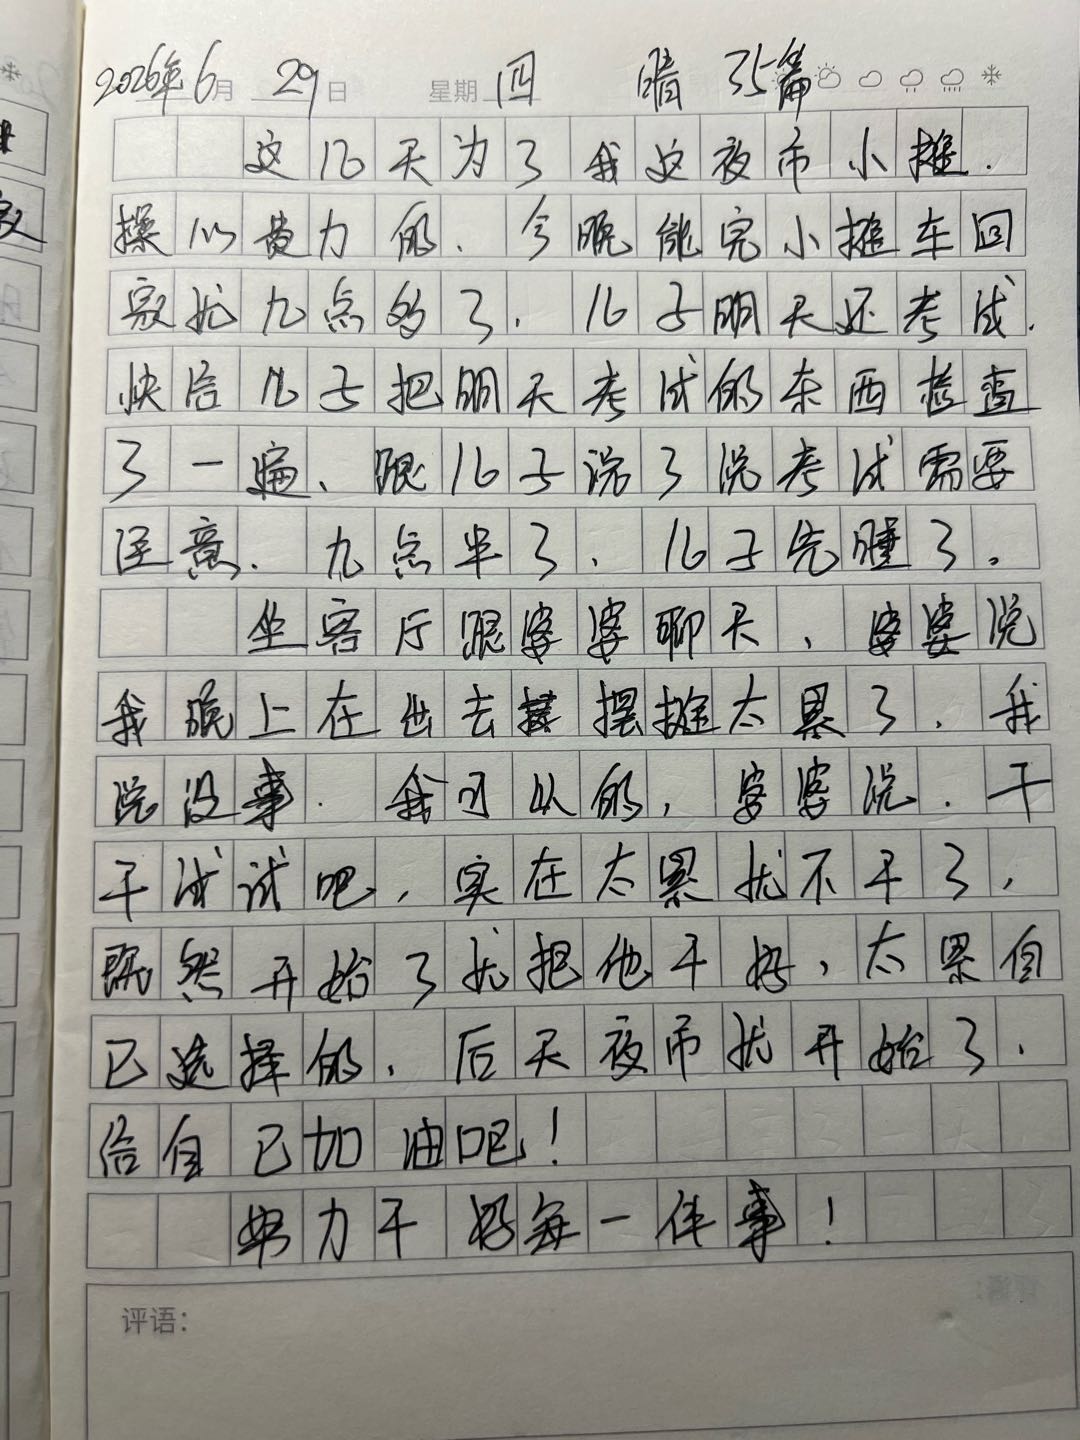 2026年6月29日 星期四 晴 35篇
这几天为了我这夜市小摊.
操心费力的、今晚能完小摊车回
家就九点多了.儿子明天还考试.
快给儿子把明天考试的东西检查
了一遍、跟儿子说了说考试需要
注意.九点半了、儿子先睡了。
坐客厅跟婆婆聊天、婆婆说
我晚上在出去摆摊太累了.我
说没事.我可以的,婆婆说.干
干试试吧,实在太累就不干了,
既然开始了就把他干好,太累自
己选择的.后天夜市就开始了.
给自己加油吧!
努力干好每一件事!
评语: